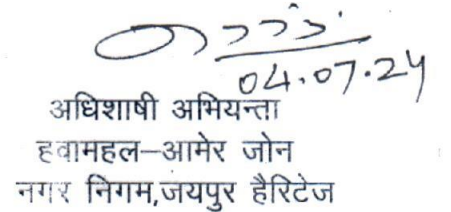 04.07.24
अधिशाषी अभियन्ता
हवामहल–आमेर जोन
नगर निगम,जयपुर हैरिटेज